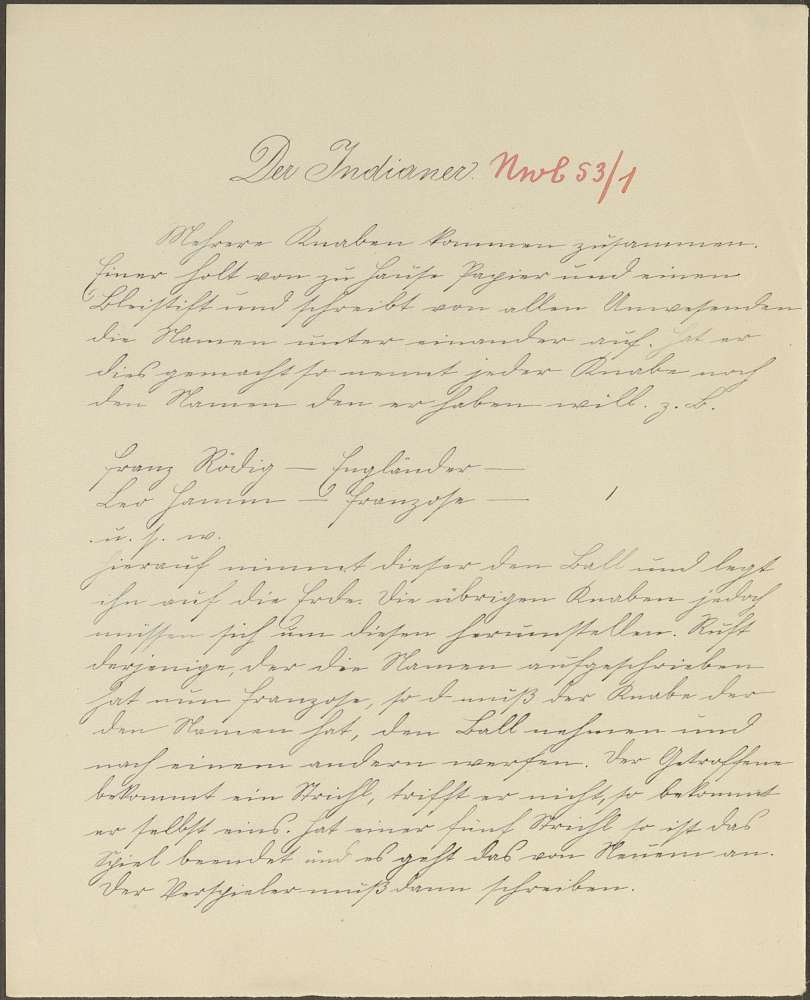 Der Indianer. Nwb 53/1
Mehrere Knaben kommen zusammen.
Einer holt von zu Hause Papier und einen
Bleistift und schreibt von allen Anwesenden
die Namen unter einander auf. Hat er
dies gemacht so nennt jeder Knabe noch
den Namen den er haben will. z. B.
Franz Rödig — Engländer —
Leo Hamm — Franzose —
u. s. w.
Hierauf nimmt dieser den Ball und legt
ihn auf die Erde. Die übrigen Knaben jedoch
müssen sich um diesen herumstellen. Ruft
derjenige, der die Namen aufgeschrieben
hat nun Franzose, so d muß der Knabe der
den Namen hat, den Ball nehmen und
nach einem andern werfen. Der Getroffene
bekommt ein Strichl, trifft er nicht, so bekommt
er selbst eins. Hat einer fünf Strichl so ist das
Spiel beendet und es geht das von Neuem an.
Der Verspieler muß dann schreiben.